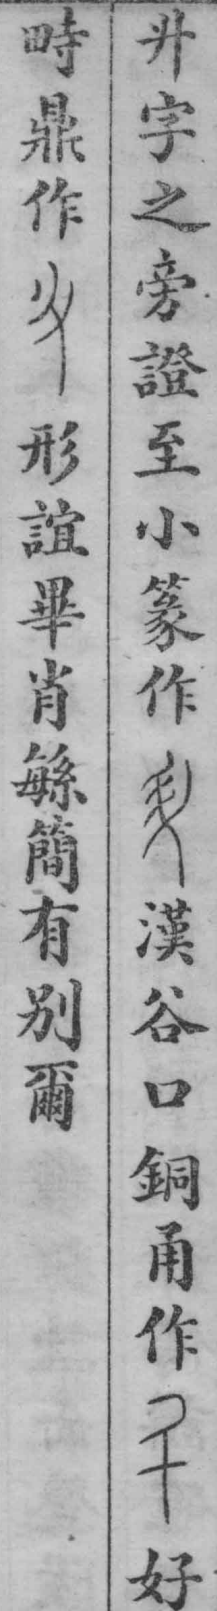 廾字之旁證至小篆作漢谷口銅甬作好
畤鼎作形誼畢肖緐簡有別爾